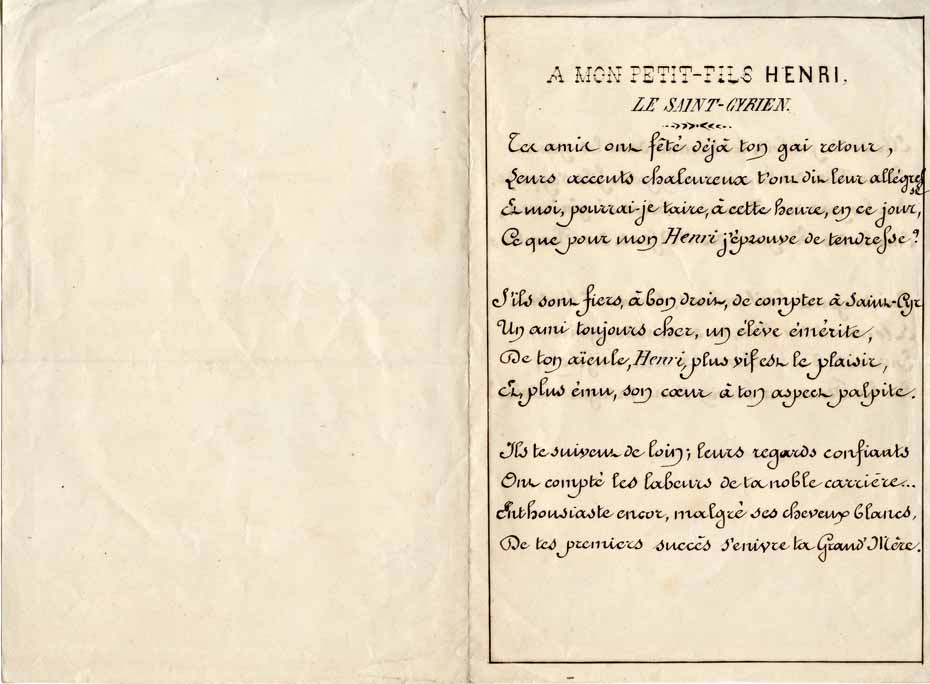 A MON PETIT-FILS HENRI.
LE SAINT-CYRIEN.
Tes amis ont fêté déjà ton gai retour,
Leurs accents chaleureux t'ont dit leur allégresse
Et moi, pourrai-je taire, à cette heure, en ce jour,
Ce que pour mon Henri j'éprouve de tendresse ?
S'ils sont fiers, à bon droit, de compter à Saint-Cyr
Un ami toujours cher, un élève émérite,
De ton aïeule, Henri, plus vif est le plaisir,
Et, plus ému, son cœur à ton aspect palpite.
Ils te suivent de loin ; leurs regards confiants
Ont compté les labeurs de ta noble carrière...
Enthousiaste encor, malgré ses cheveux blancs,
De tes premiers succès s'enivre ta Grand'Mère.